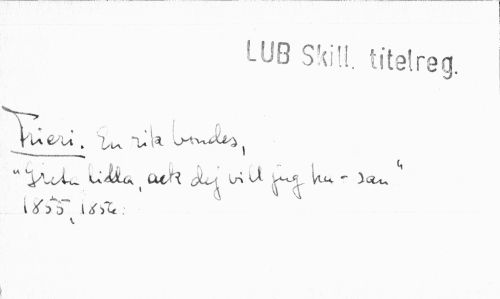 LUB Skill. titelreg.
Frieri. En rik bondes,
"Greta lilla, ack dej vill jag ha - san"
1855, 1856.